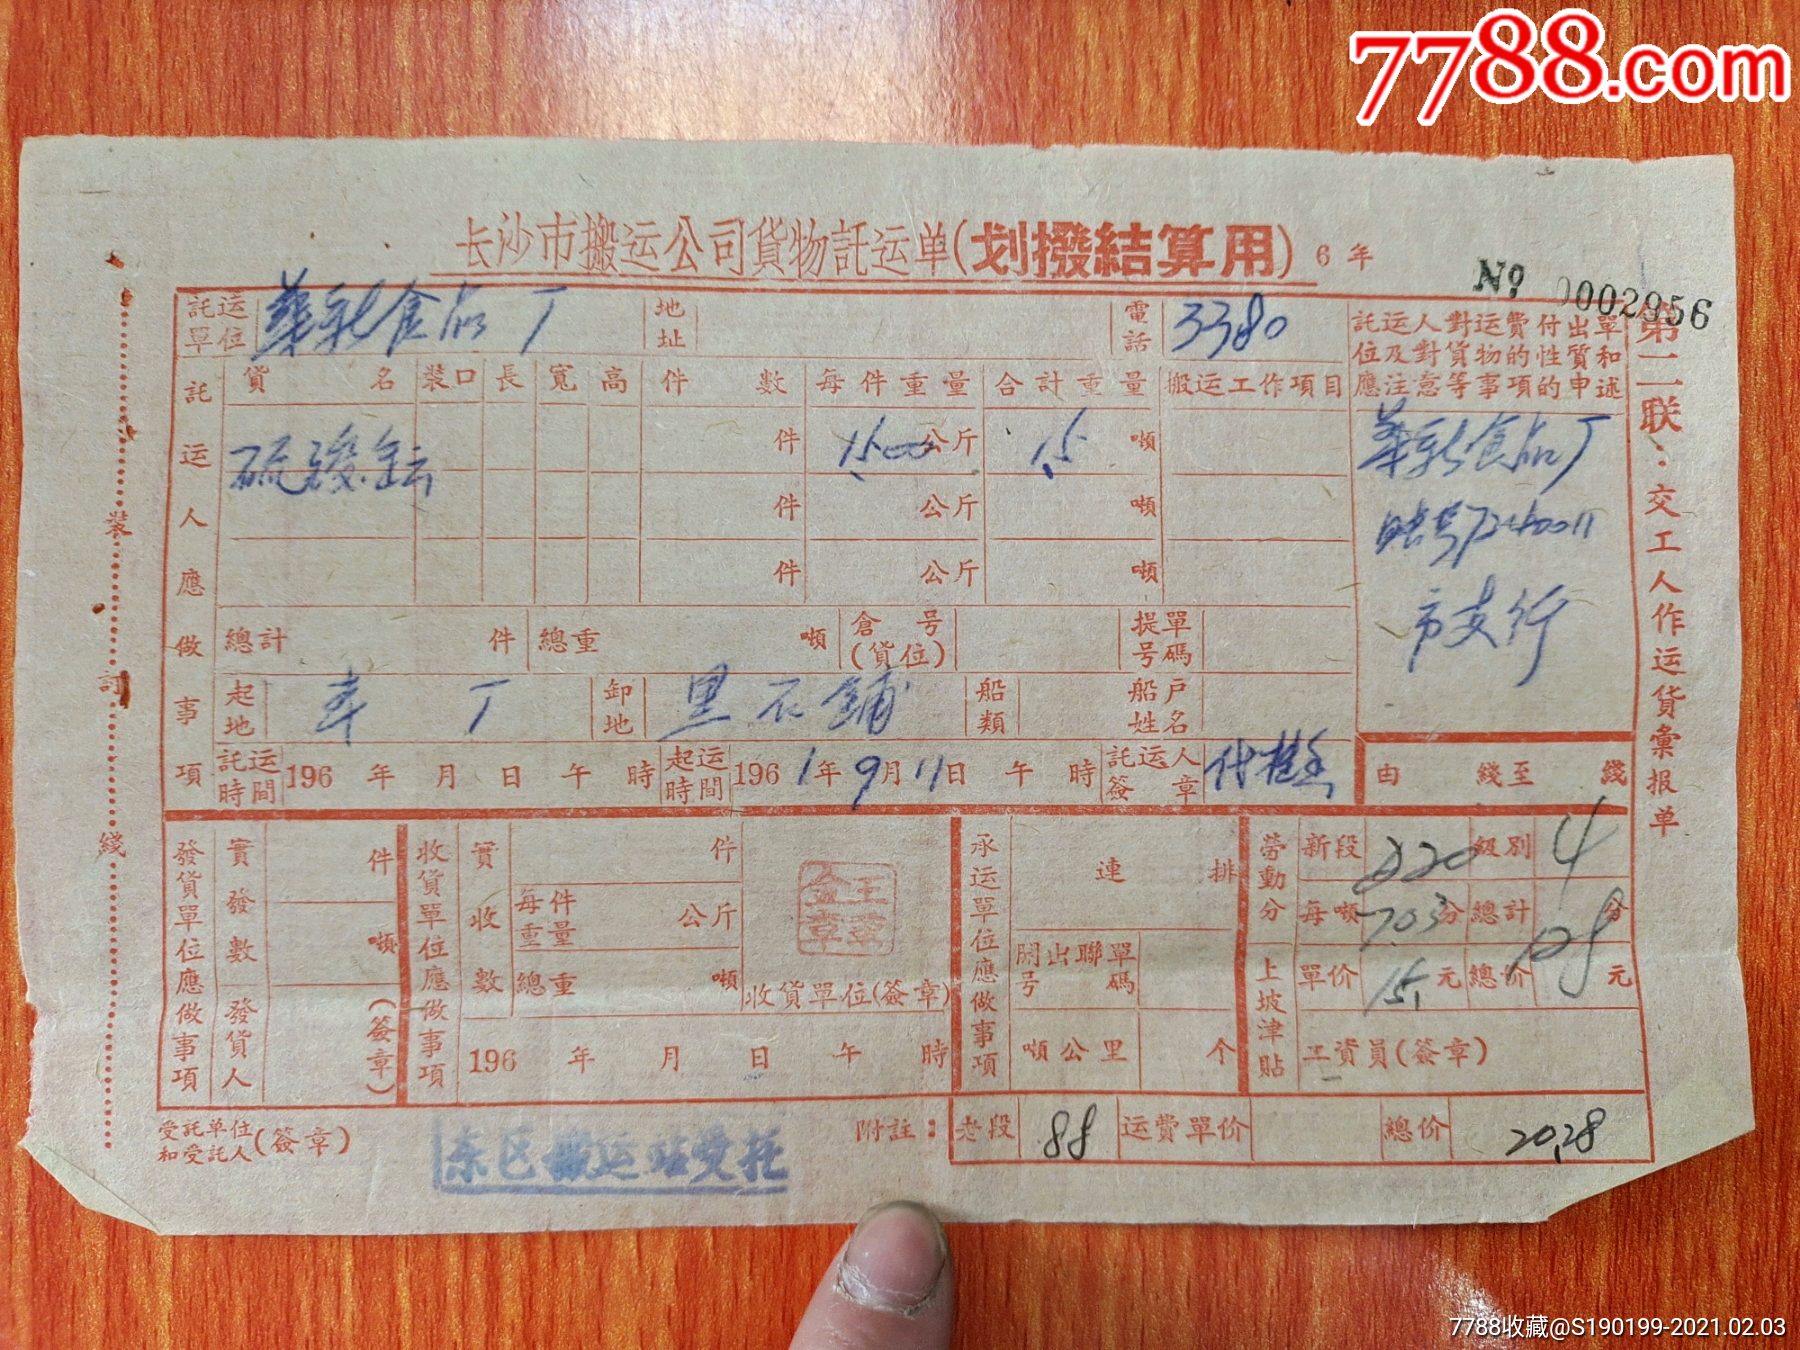 7788.com
长沙市搬运公司貨物託运单(划撥結算用) 6 年
№ 0002956
託运單位 華新食品厂 地址 電話 3380 託运人對运費付出單位及對貨物的性質和應注意等事項的申述
貨名 装口 長 寬 高 件數 每件重量 合計重量 搬运工作項目
硫酸 件 1500公斤 1.5 噸
件 公斤 噸
件 公斤 噸
華新食品厂
市支行
總計 件 總重 噸 倉号(貨位) 提單号碼
起地 本厂 卸地 黑石鋪 船類 船戶姓名
託运時間 196 年 月 日 午 時 起运時間 1961年9月11日 午 時 託运人簽章
由 綫至 綫
託运人應做事項
發貨單位應做事項 實發數 件 噸 發貨人 (簽章)
收貨單位應做事項 實收數 件 每件重量 公斤 總重 噸 收貨單位(簽章)
196 年 月 日 午 時
承运單位應做事項 連 排 開出聯單号碼 噸公里 个
勞動分 新段 220 級別 4
每噸 703分 總計 分
上坡津貼 單价 15. 元 總价 元
工資員(簽章)
受託單位和受託人(簽章) 东区搬运站受托
附註: 老段 88 运費單价 總价 20.28
第二联:交工人作运货彙报单
装 訂 綫
7788收藏@S190199-2021.02.03